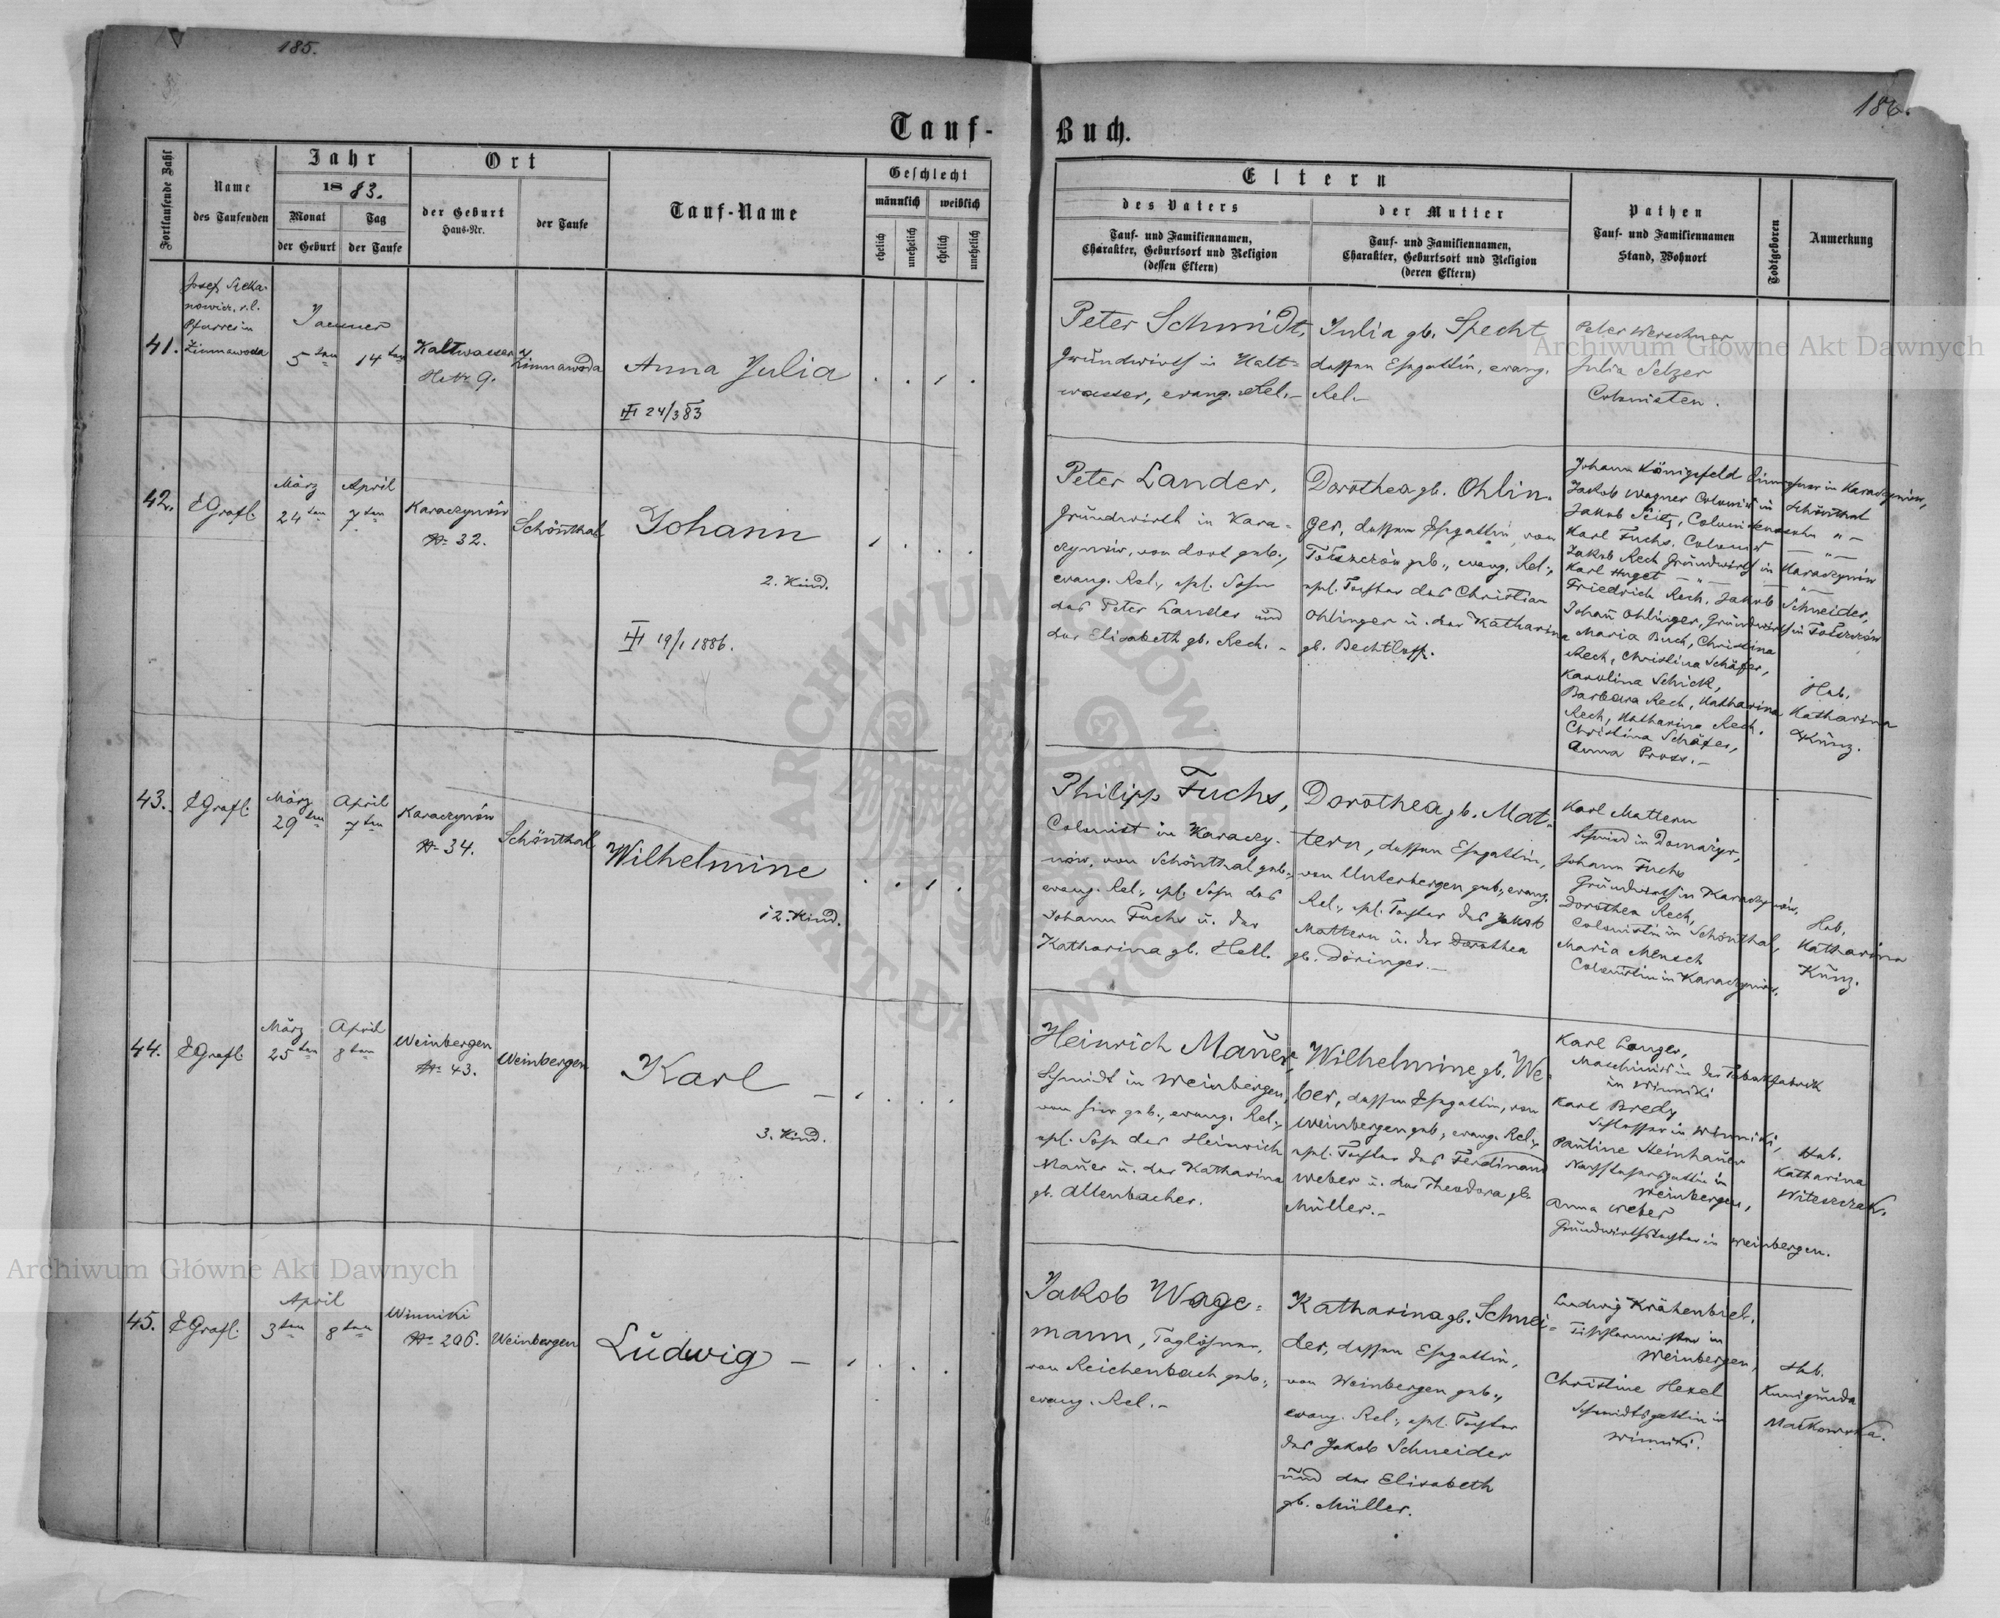 185.
186.
Tauf-
Buch.
Fortlaufende Zahl
Name
des Taufenden
Jahr
1883.
Monat
der Geburt
Tag
der Taufe
Ort
der Geburt
Haus-Nr.
der Taufe
Tauf-Name
Geschlecht
männlich
weiblich
ehelich
unehelich
ehelich
unehelich
Eltern
des Vaters
Tauf- und Familiennamen,
Charakter, Geburtsort und Religion
(dessen Eltern)
der Mutter
Tauf- und Familiennamen,
Charakter, Geburtsort und Religion
(deren Eltern)
Pathen
Tauf- und Familiennamen
Stand, Wohnort
Todtgeboren
Anmerkung
41.
Josef
Pfarrer in
Zimnawoda
Jaenner
5ten
14ten
Kaltwasser
HsNr 9.
Zimnawoda
Anna Julia
III 24/3 83
Peter Schmidt,
Grundwirth in Kalt=
wasser, evang. Rel.-
Julia gb. Specht
dessen Ehegattin, evang.
Rel.-
Peter Werschner
Julia Selzer
Colonisten.
42.
E Grafl.
März
24ten
April
7ten
Karaczynów
No 32.
Schönthal
Johann
2. Kind.
III 19/1 1886.
Peter Lander,
Grundwirth in Kara=
czynów, von dort geb.,
evang. Rel., ehl. Sohn
des Peter Lander und
der Elisabeth gb. Rech. -
Dorothea gb. Ohlin=
ger, dessen Ehegattin, von
Tołszczów geb., evang. Rel.,
ehl. Tochter des Christian
Ohlinger u. der Katharina
gb. Bechtloff.
Johann Königsfeld Einwohner in Karaczynów,
Jakob Wagner Colonist in Schönthal
Jakob Seitz, Colonistensohn "-
Karl Fuchs, Colonist - "-
Jakob Rech Grundwirth in Karaczynów
Karl Huget - " -
Friedrich Rech, Jakob Schneider,
Johann Ohlinger, Grundwirth in Tołszczów
Maria Buch, Christina
Rech, Christina Schäfer,
Karolina Schick,
Barbara Rech, Katharina
Rech, Katharina Rech,
Christina Schäfer,
Anna Pross.-
Heb.
Katharina
Kunz.
43.
E Grafl.
März
29ten
April
7ten
Karaczynów
No 34.
Schönthal
Wilhelmine
12. Kind.
Philipp Fuchs,
Colonist in Karaczy=
nów, von Schönthal geb.,
evang. Rel., ehl. Sohn des
Johann Fuchs u. der
Katharina gb. Hell.
Dorothea gb. Mat=
tern, dessen Ehegattin,
von Unterbergen geb., evang.
Rel., ehl. Tochter des Jakob
Mattern u. der Dorothea
gb. Döringer.-
Karl Mattern
Schmied in Domażyr,
Johann Fuchs
Grundwirth in Karaczynów,
Dorothea Rech,
Colonistin in Schönthal,
Maria Mensch
Colonistin in Karaczynów.
Heb.
Katharina
Kunz.
44.
E Grafl.
März
25ten
April
8ten
Weinbergen
No 43.
Weinbergen
Karl -
3. Kind.
Heinrich Mauer,
Schmidt in Weinbergen,
von hier geb., evang. Rel.,
ehl. Sohn des Heinrich
Mauer u. der Katharina
gb. Allenbacher.
Wilhelmine gb. We=
ber, dessen Ehegattin, von
Weinbergen geb., evang. Rel.,
ehl. Tochter des Ferdinand
Weber u. der Theodora gb.
Müller.-
Karl Langer,
Maschinist in der Tabakfabrik
in Winniki
Karl Bredy
Schlosser in Winniki,
Pauline Steinhauer
in
Weinbergen,
Anna Weber
Grundwirthstochter in Weinbergen.
Heb.
Katharina
Witeszczak.
45.
E Grafl.
April
3ten
8ten
Winniki
No 206.
Weinbergen
Ludwig -
Jakob Wage=
mann, Taglöhner,
von Reichenbach geb.,
evang. Rel.-
Katharina gb. Schnei=
der, dessen Ehegattin,
von Weinbergen geb.,
evang. Rel., ehl. Tochter
des Jakob Schneider
und der Elisabeth
gb. Müller.
Ludwig Krähenbiel,
Tischlermeister in
Weinbergen,
Christine Hexel
Schmidtsgattin in
Winniki.
Heb.
Kunigunda
Małkowska.
Archiwum Główne Akt Dawnych
Archiwum Główne Akt Dawnych
ARCHIWUM GŁÓWNE AKT DAWNYCH